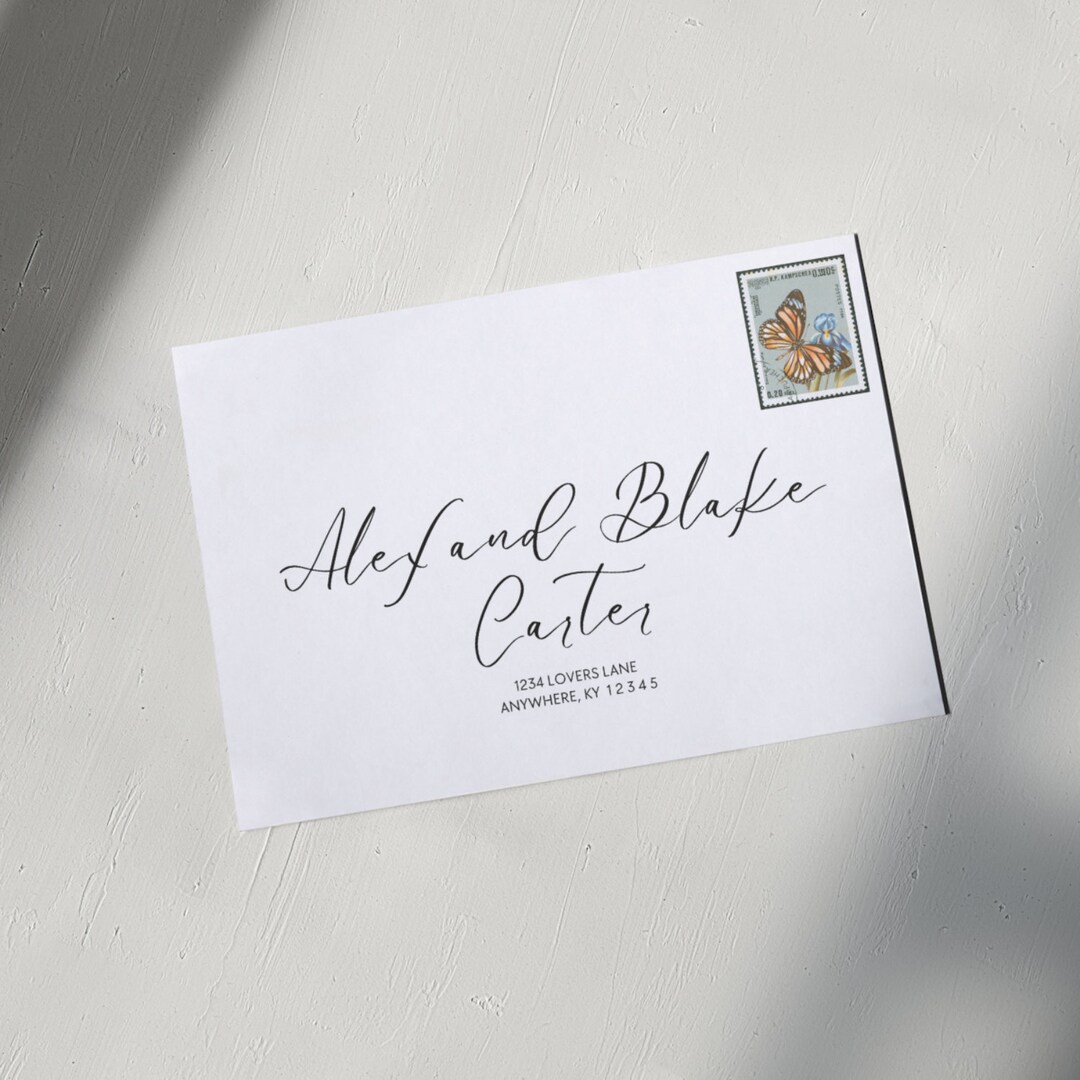 R.P. KAMPUCHEA 0.20
0.20
Alex and Blake
Carter
1234 LOVERS LANE
ANYWHERE, KY 12345